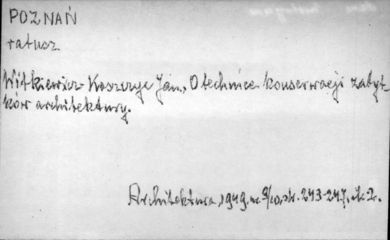 POZNAŃ
ratusz
Witkiewicz-Koszczyc Jan, O technice konserwacji zabyt-
ków architektury.
Architektura, 1949, nr 9/10, str. 243-247, il. 2.